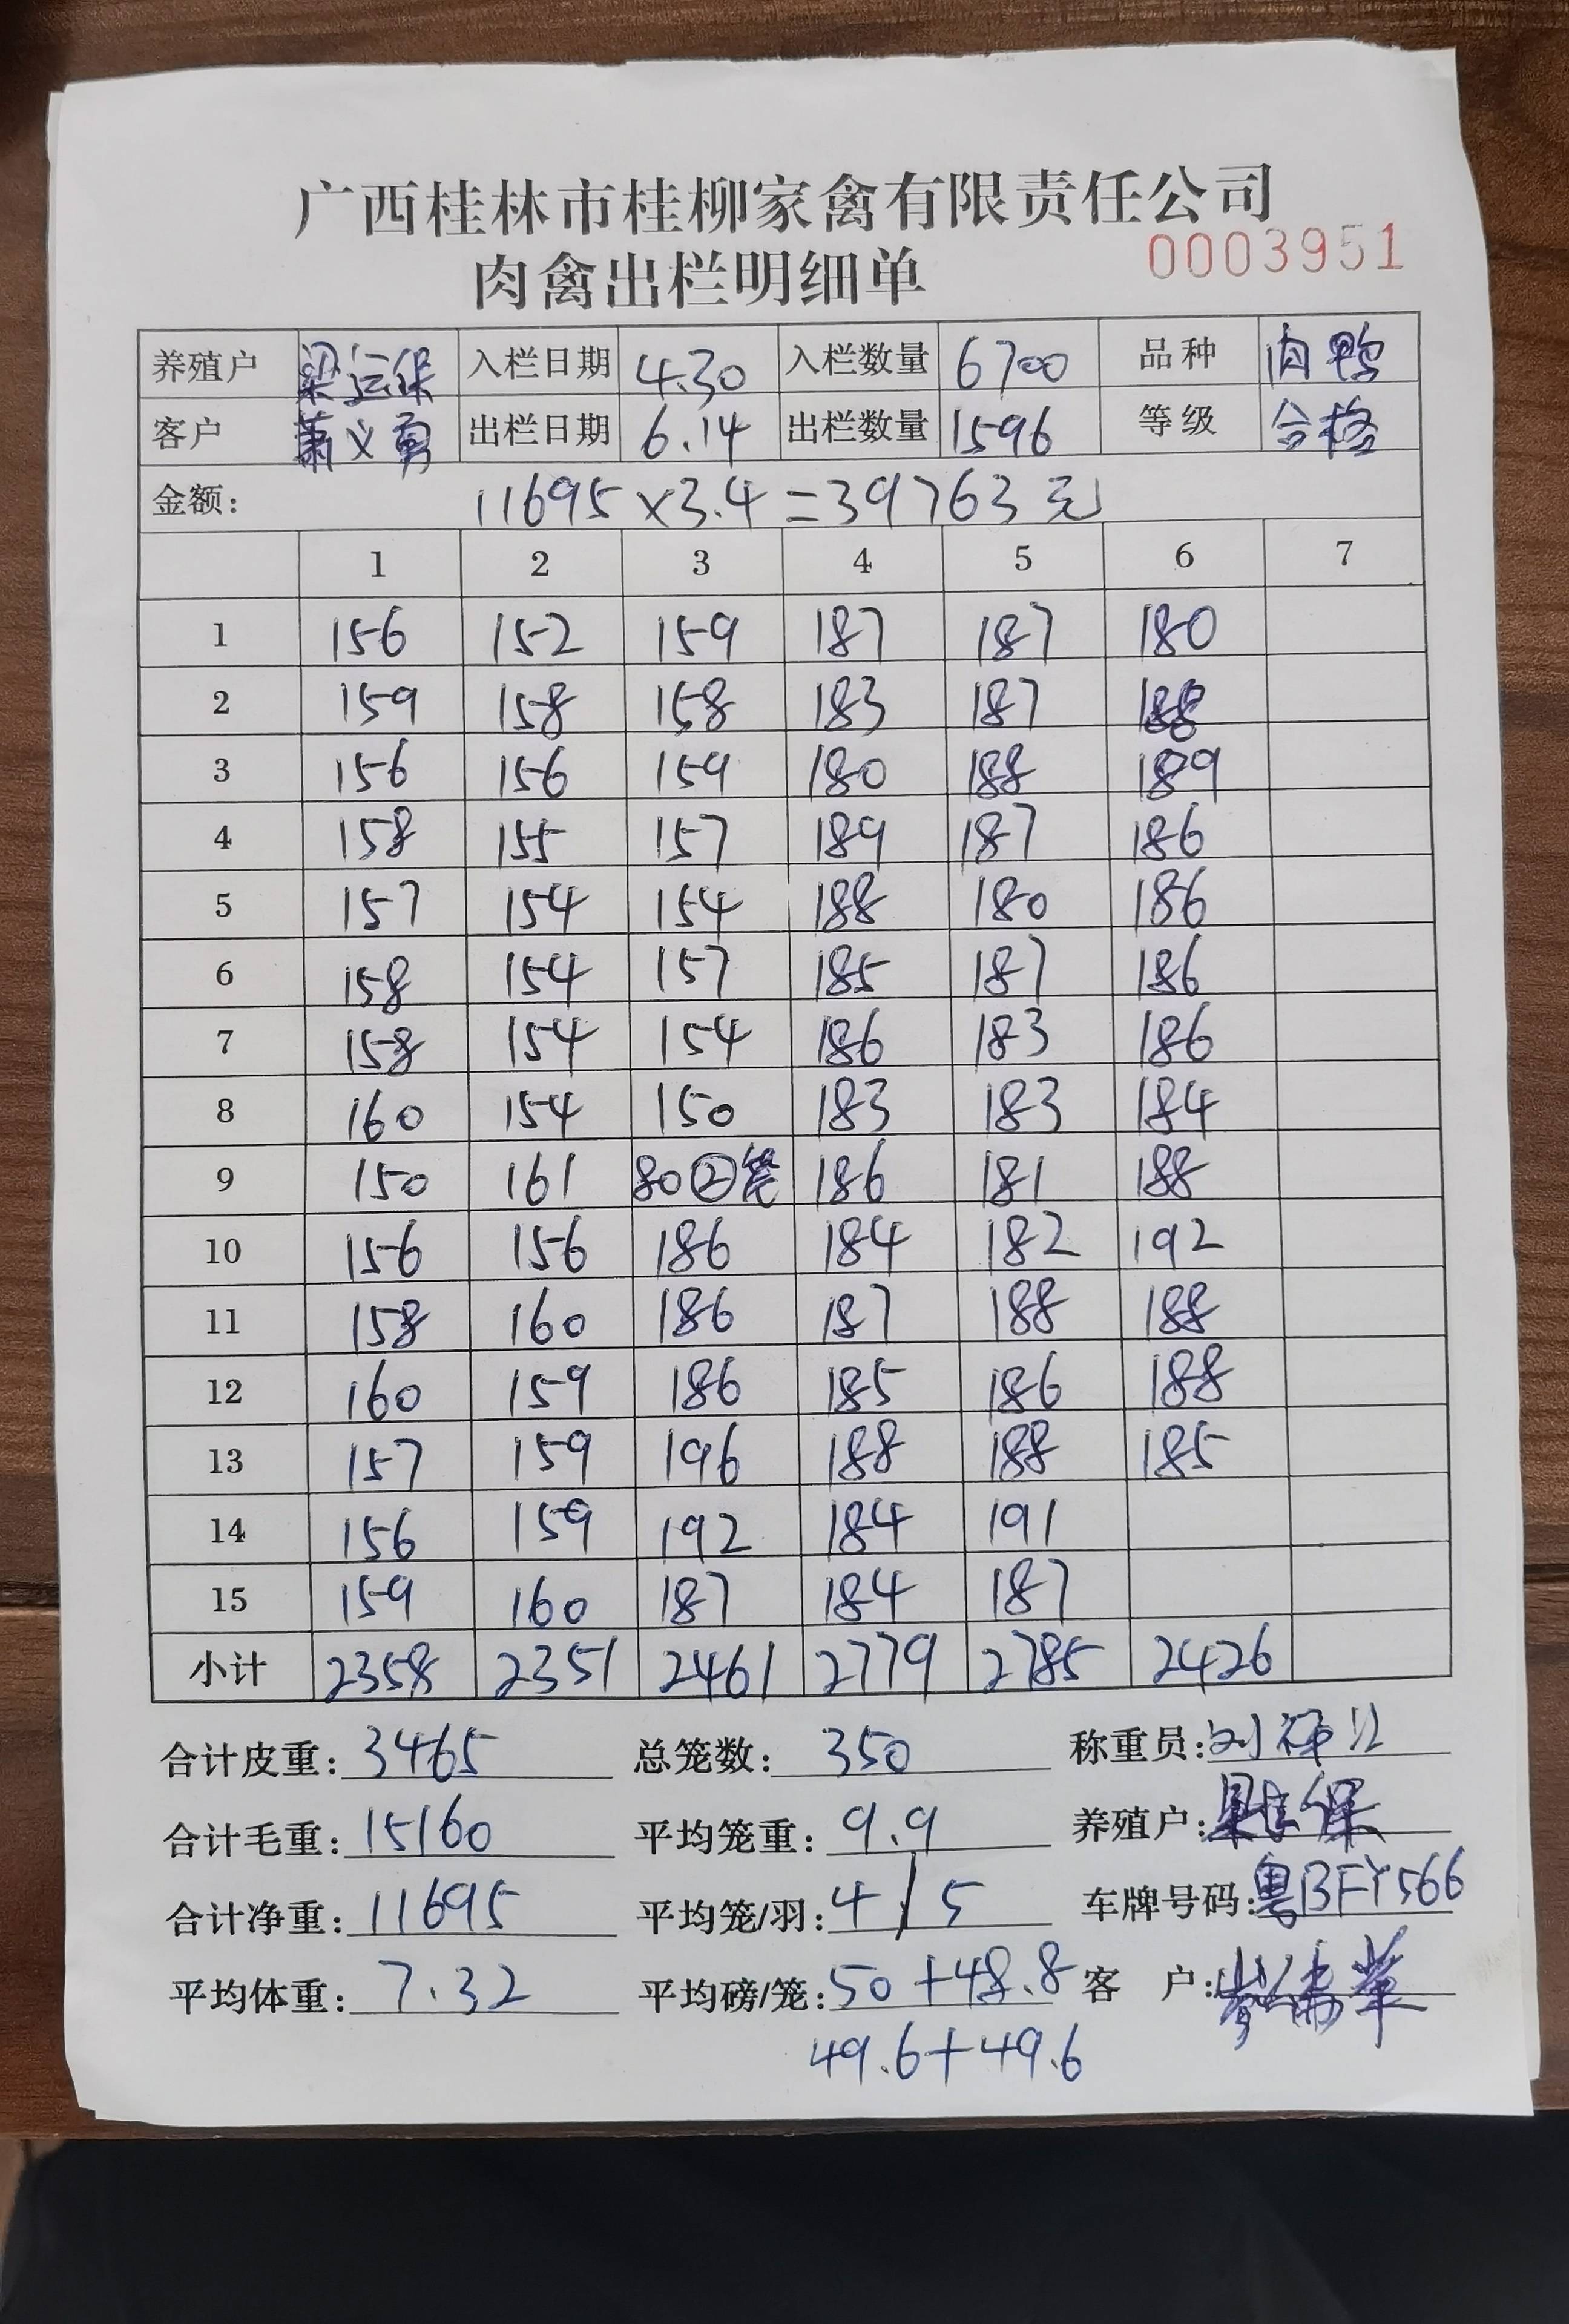 广西桂林市桂柳家禽有限责任公司
肉禽出栏明细单 0003951
养殖户 梁运保 入栏日期 4.30 入栏数量 6700 品种 肉鸭
客户 萧义勇 出栏日期 6.14 出栏数量 1596 等级 合格
金额: 11695×3.4=39763元
1 2 3 4 5 6 7
1 156 152 159 187 187 180
2 159 158 158 183 187 188
3 156 156 159 180 188 189
4 158 155 157 189 187 186
5 157 154 154 188 180 186
6 158 154 157 185 187 186
7 158 154 154 186 183 186
8 160 154 150 183 183 184
9 150 161 80②笼 186 181 188
10 156 156 186 184 182 192
11 158 160 186 187 188 188
12 160 159 186 185 186 188
13 157 159 196 188 188 185
14 156 159 192 184 191
15 159 160 187 184 187
小计 2358 2351 2461 2779 2785 2426
合计皮重: 3465 总笼数: 350 称重员: 刘
合计毛重: 15160 平均笼重: 9.9 养殖户: 梁运保
合计净重: 11695 平均笼/羽: 4/5 车牌号码: 粤BFY566
平均体重: 7.32 平均磅/笼: 50+48.8 客 户:
49.6+49.6